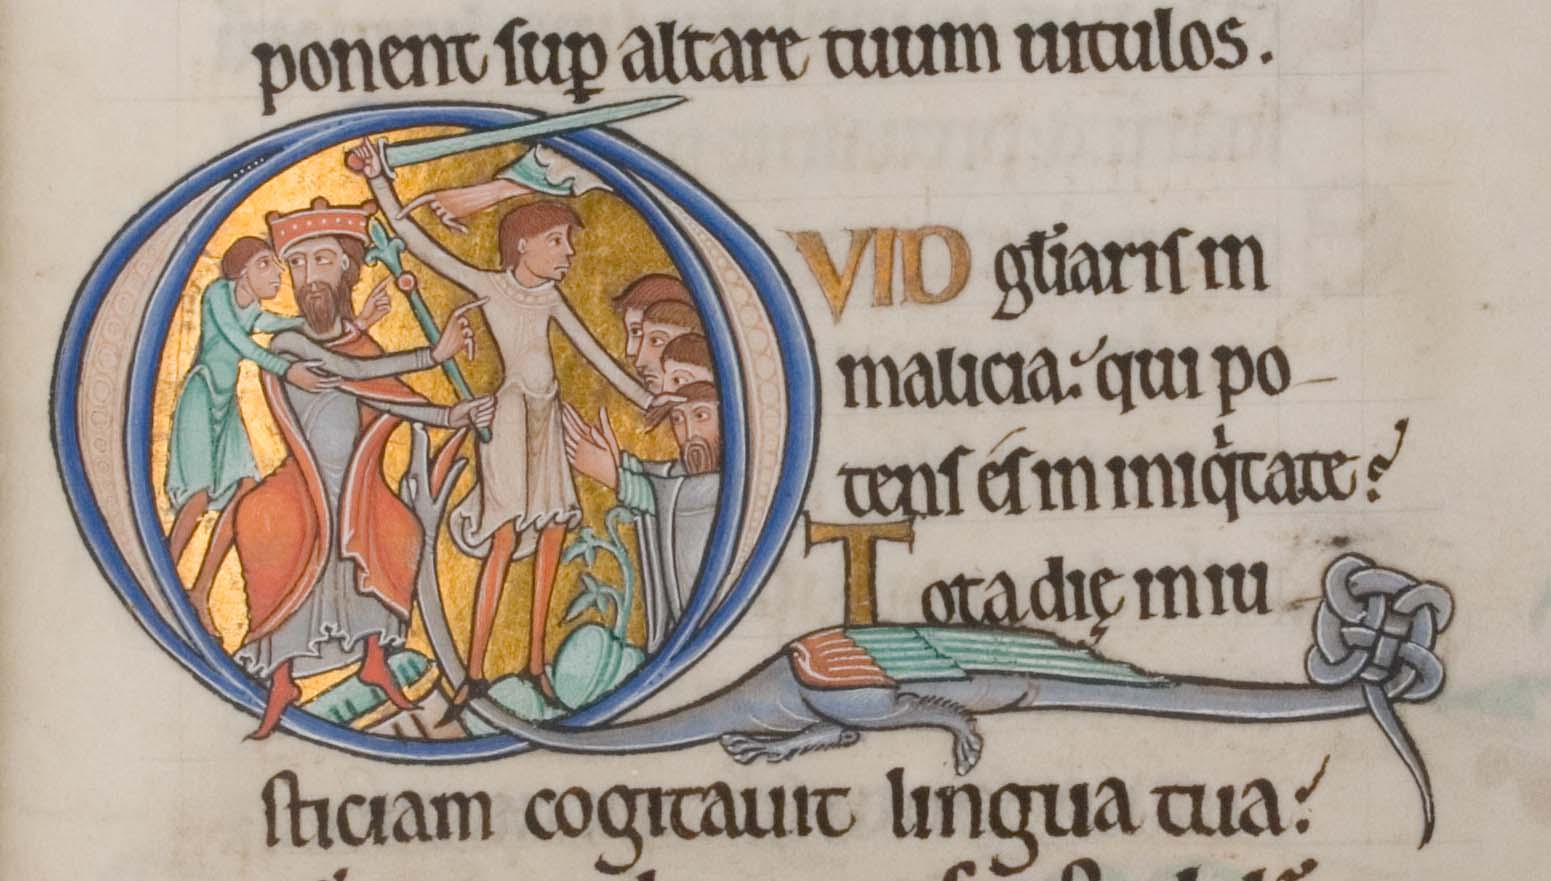 ponent sup altare tuum uitulos.
QVID gl̄iaris in
malicia: qui po
tens és in iniqͥtate?
Tota dię iniu
sticiam cogitauit lingua tua: